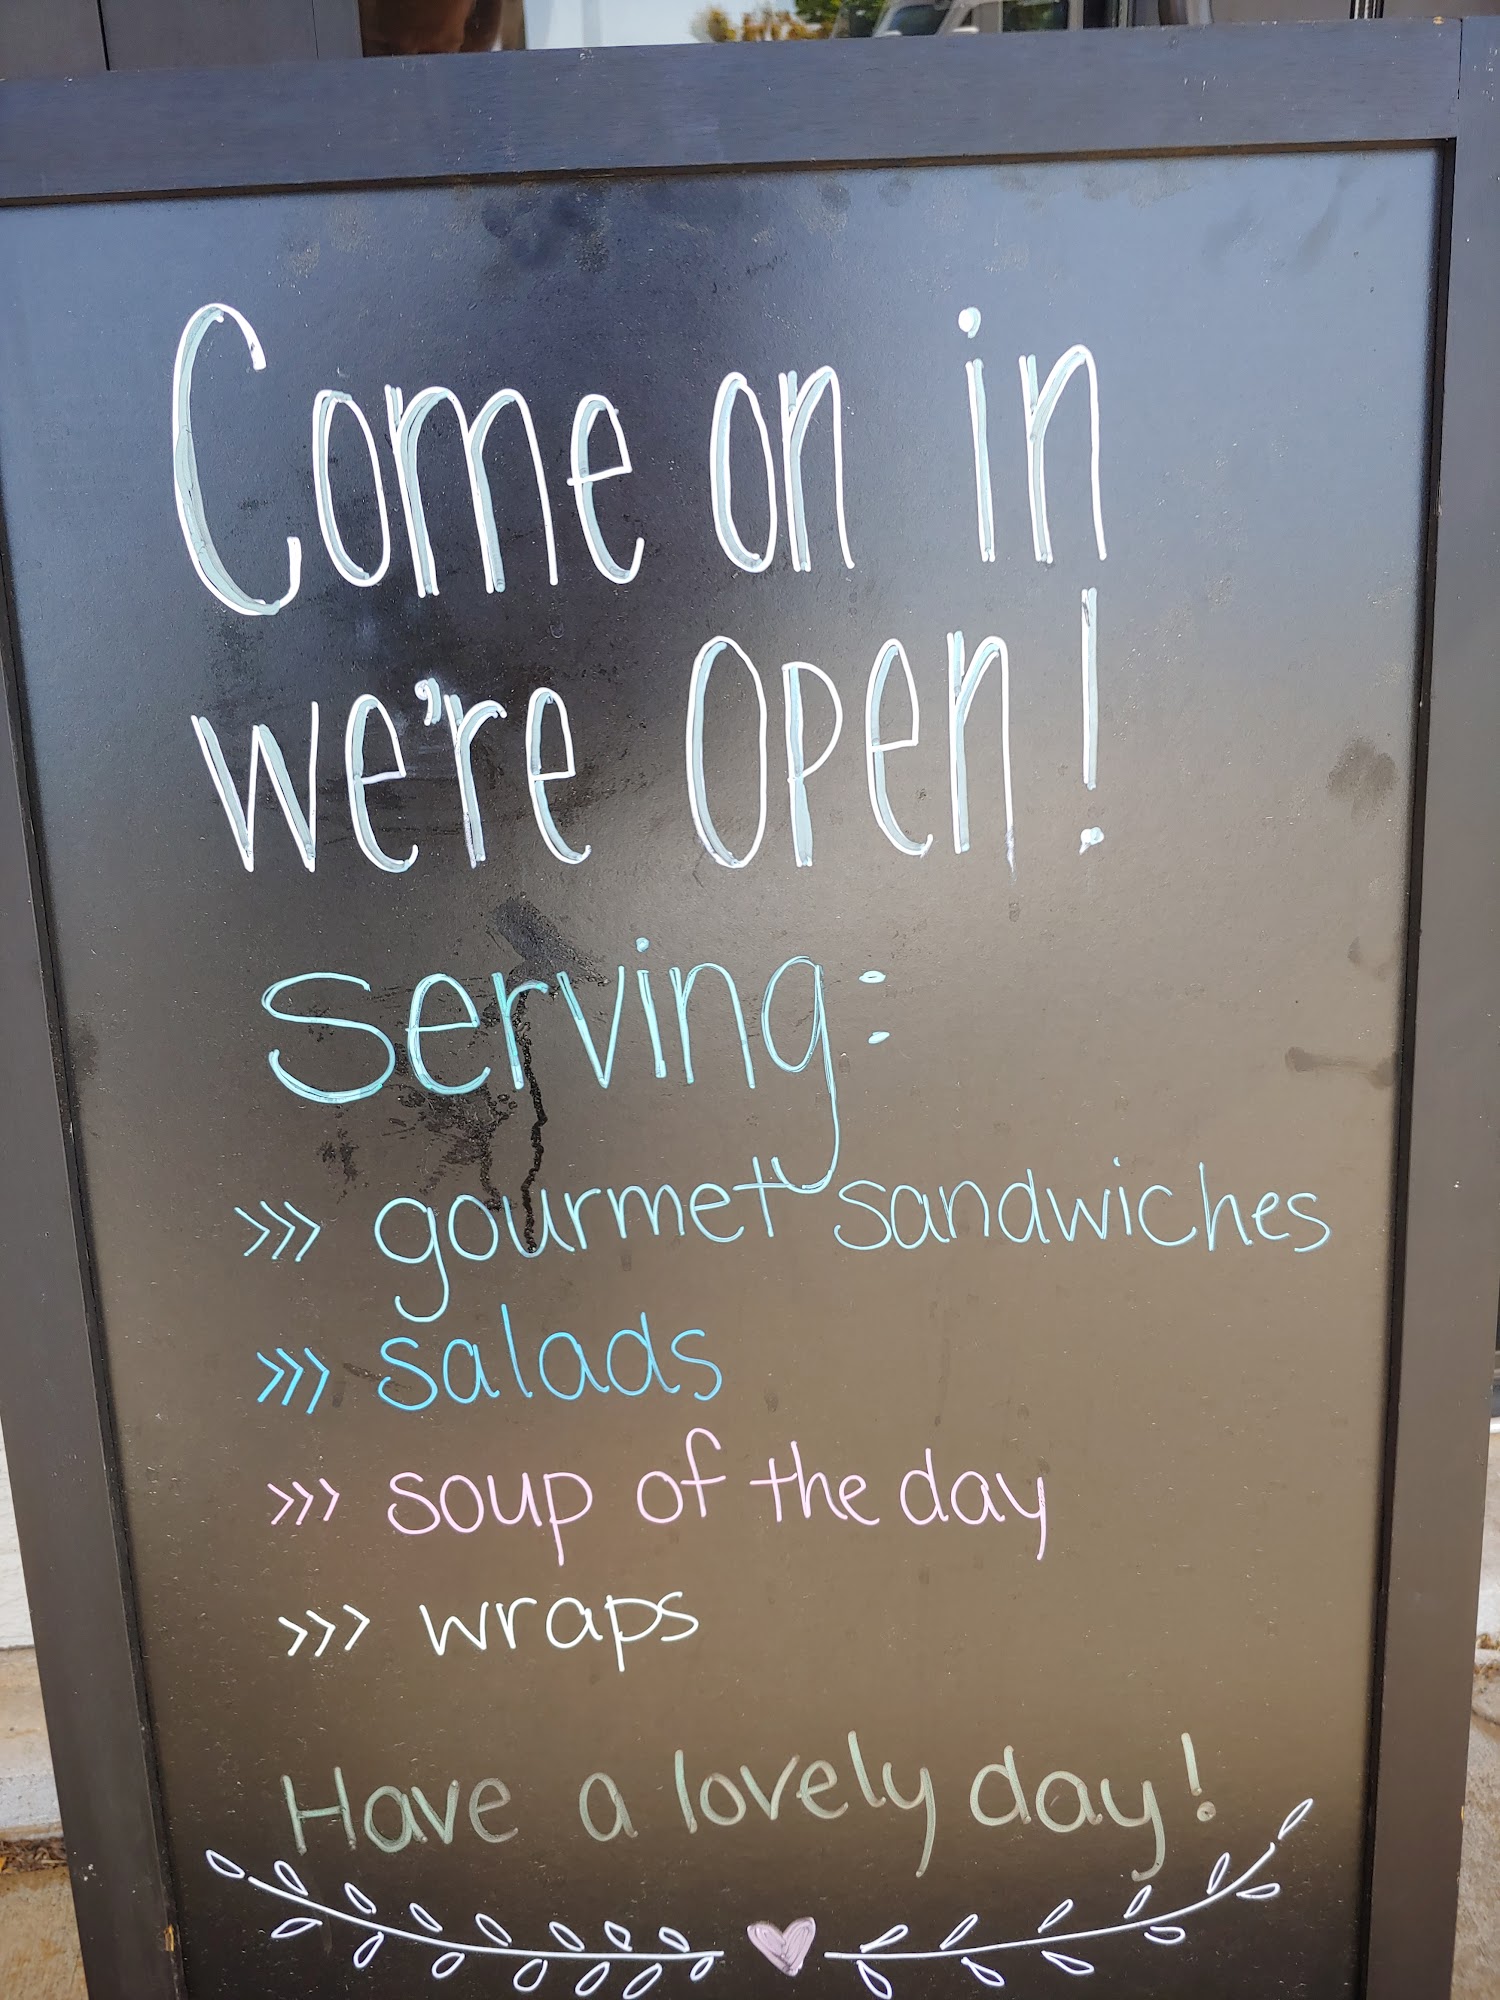 Come on in
we're open!
Serving:
>>> gourmet sandwiches
>>> salads
>>> soup of the day
>>> wraps
Have a lovely day!